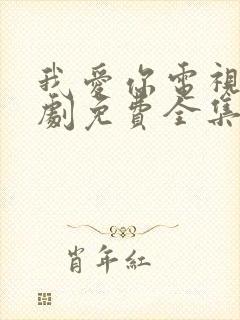 我愛你電視
劇免費全集
肖年紅